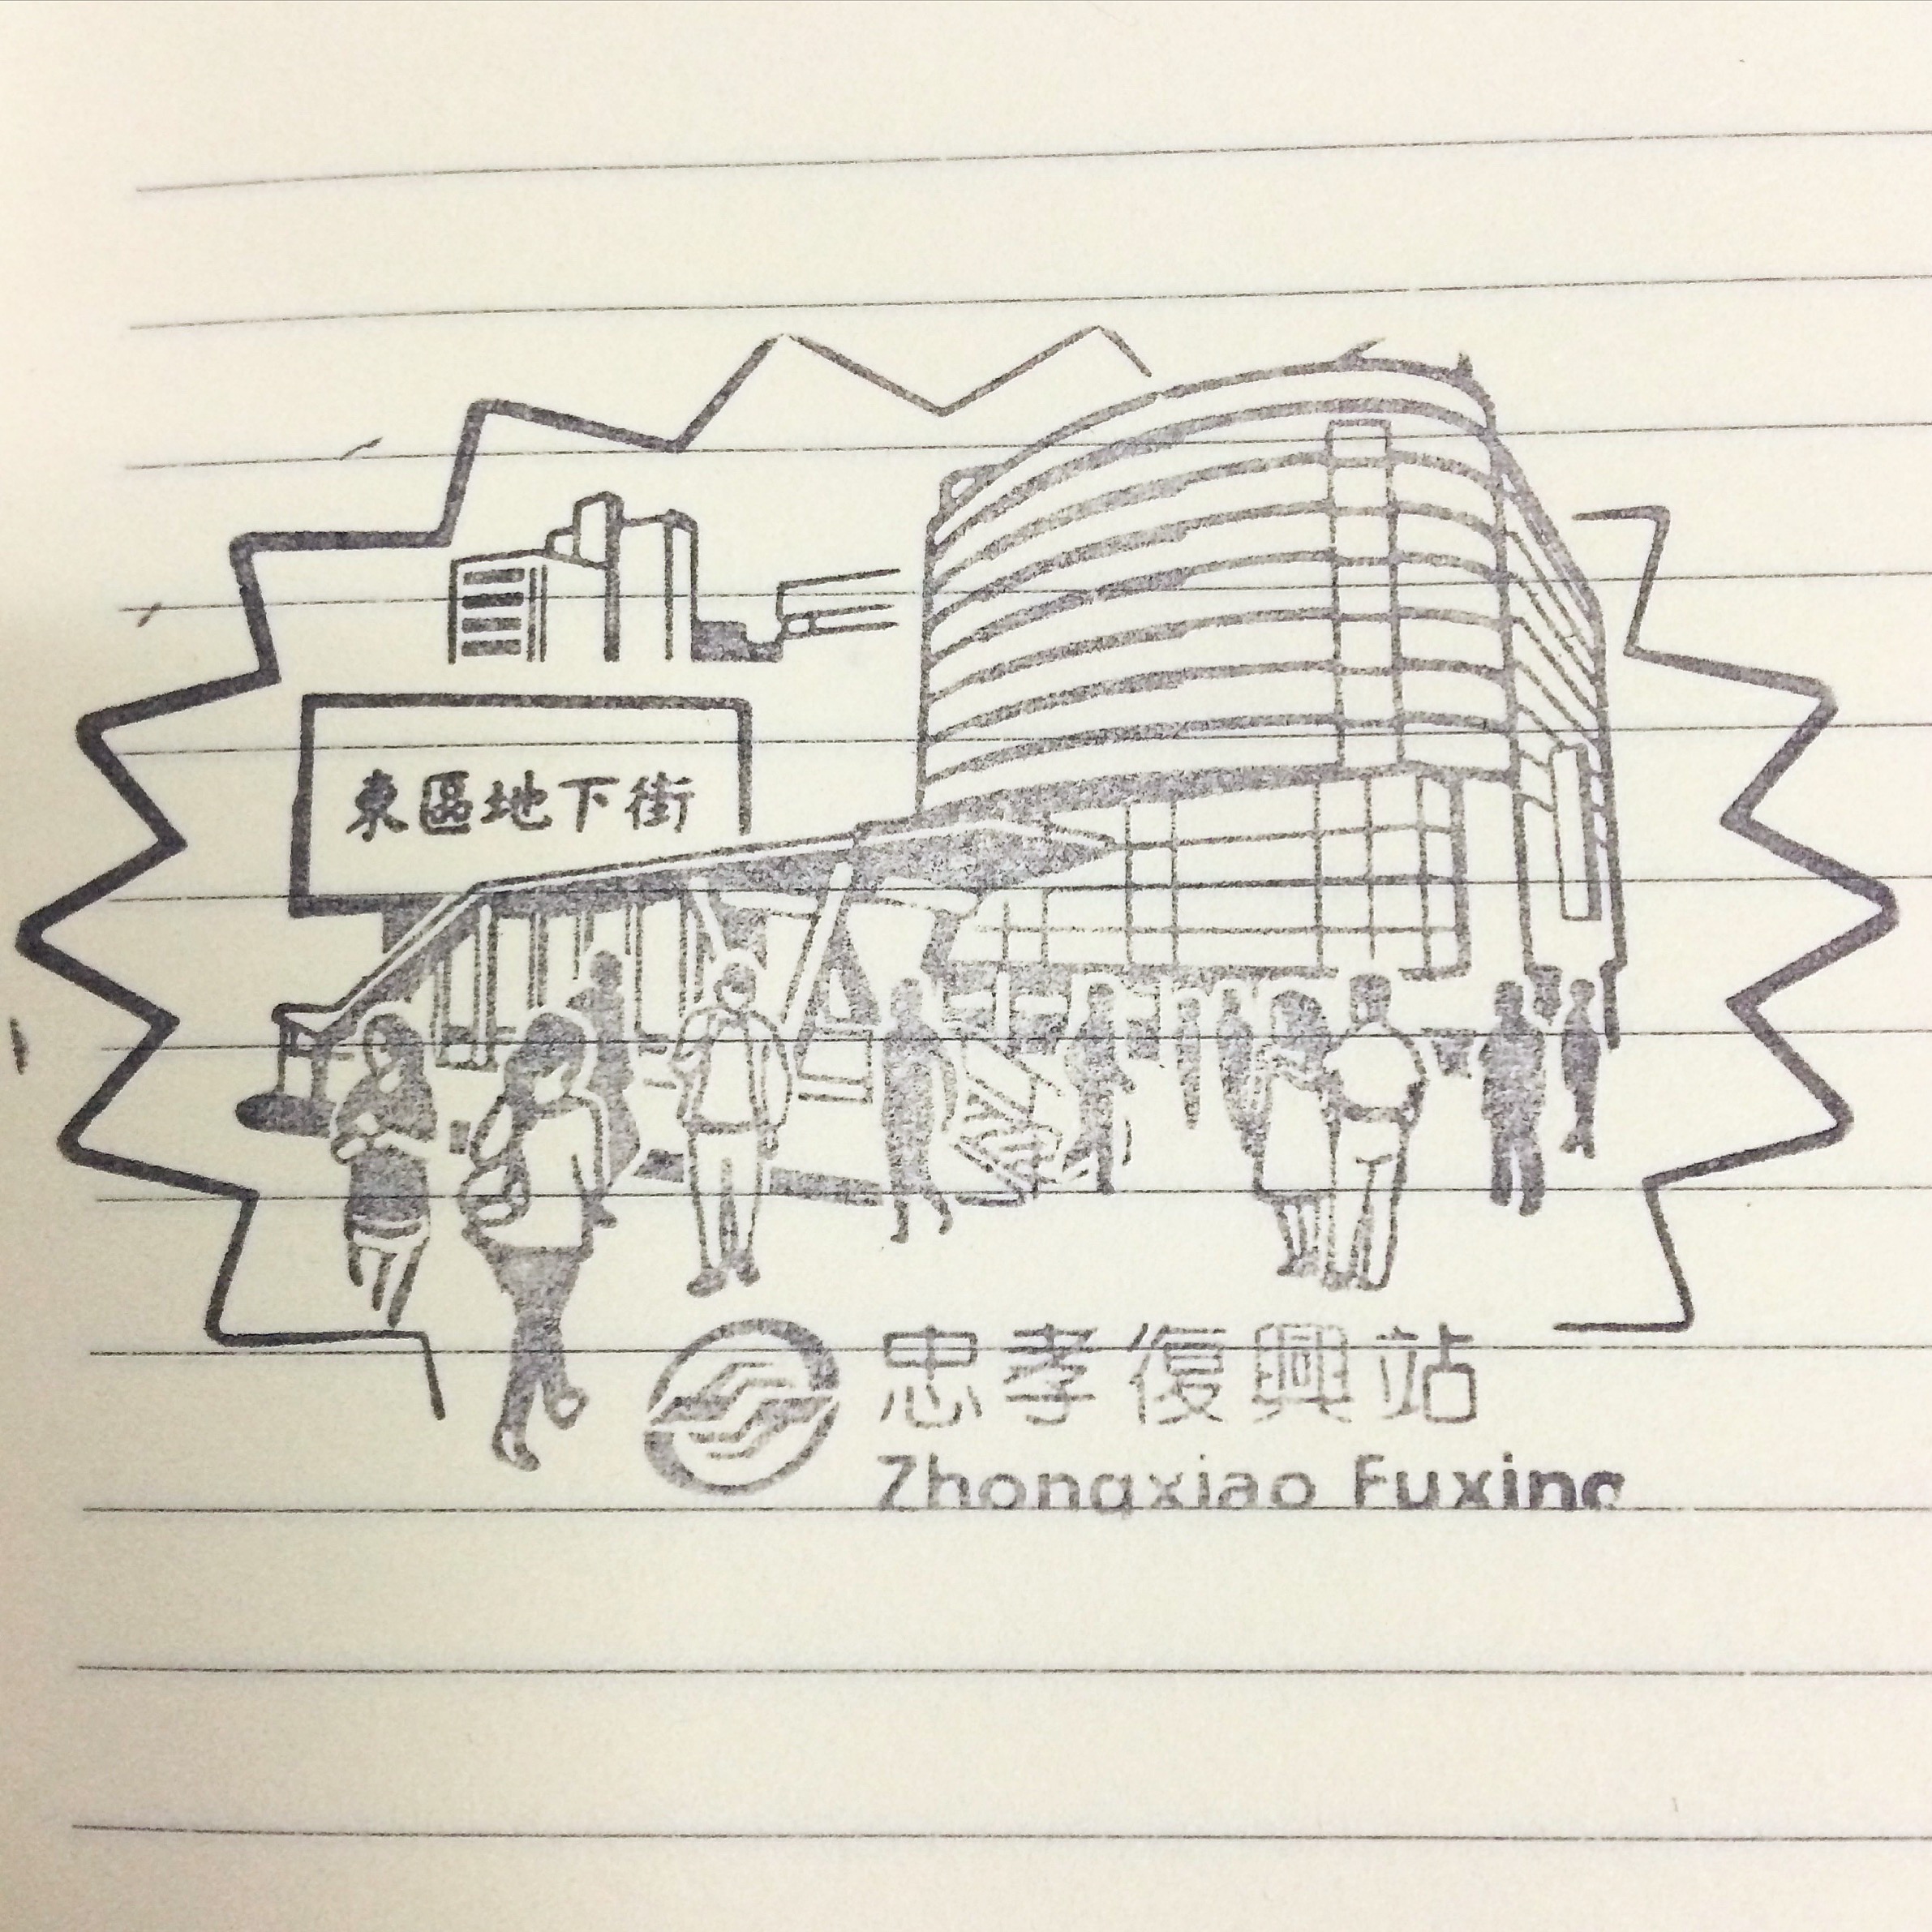 東區地下街
忠孝復興站
Zhongxiao Fuxing